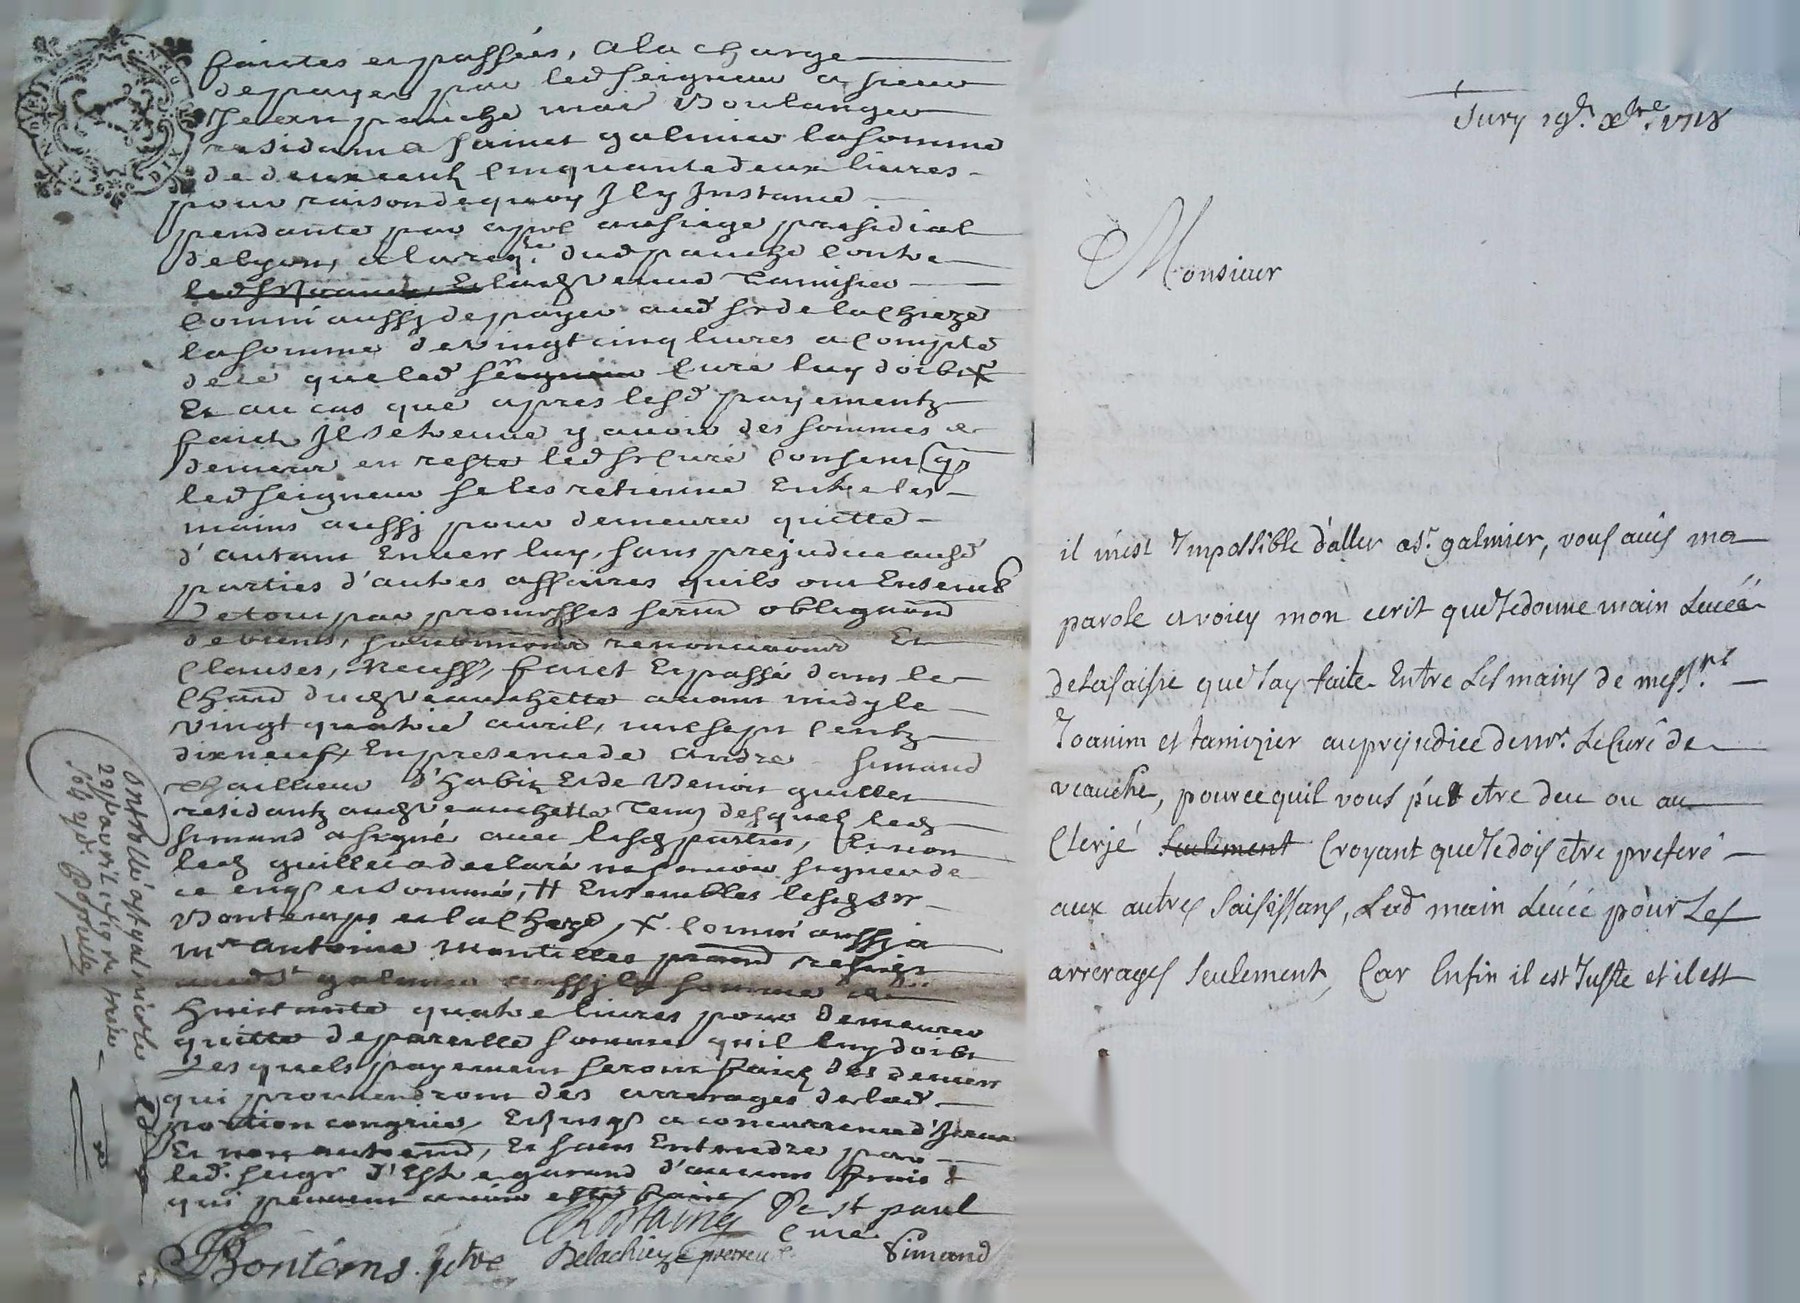 faictes et passées, a la charge
de payer par led seigneur a sieur
Jean pauche mai Boulanger
residant a sainct galmier la somme
de deux centz cinquante deux livres
pour raison de quoy Il y Instance
pendante par apel au siege presidial
de lyon, a la reqte dud pauche contre
et lad veuve Tamisier
comm'aussy de payer aud sr de la Chieze
la somme de vingt cinq livres a compte
de ce que led sr curé luy doibt
Et au cas que apres lesd payementz
faictz Il se treuve y avoir des sommes de
deniers en reste led sr Curé consent q
led seigneur se les retienne Entre les
mains aussy pour demeurer quitte
d'autant Envers luy, sans prejudice ausd
parties d'autres affaires qu'ils ont Ensemb
De tout par promesses serm obligaōn
de biens, renonciaōns Et
clauses, faict Et passé dans le
Chaud dud Veauchette avant midy le
vingt quatrie avril, mil sept centz
dix neuf, En presence de Andre Simand
d'habitz Et de Benoit guillet
residantz aud Veauchette Tem desquelz led
Simand a signé avec lesd parties, Et non
led guillet a declaré ne scavoir signer de
ce enq et sommé, # Ensembles lesd srs
Bontemps et la Chieze, x. comm'aussy a
Mre antoine Montilles
aud St galmier aussy la somme de
Huictante quatre livres pour demeurer
quitte de pareille somme qu'il luy doibt
Lesquels payement seront faictz des deniers
qui proviendront des arrerages de lad
portion congrue, Et jusq a concurrence d'Iceux
Et non autremd, Et sans Entendre par
led. seigr d'Estre garand d'aucuns frais
qui peuvent avoir esté faitz
De st paul
cure
Bontems. ptre
Delachieze
Simand
Controllé a st galmier le
22 avril 1719
Jury 19e. xbre. 1718
Monsieur
il m'est Impossible d'aller a st. galmier, vous avés ma
parole et voicy mon ecrit que Je donne main Levée
de la saisie que J'ay faite Entre Les mains de messrs
Joanim et tamizier au prejudice de mr. Le Curé de
veauche, pource quil vous peut etre deu ou au
Clerjé seulement Croyant que Je dois etre preferé
aux autres saisissans, Lad main Levée pour Les
arrerages seulement, Car Enfin il est Juste et il est